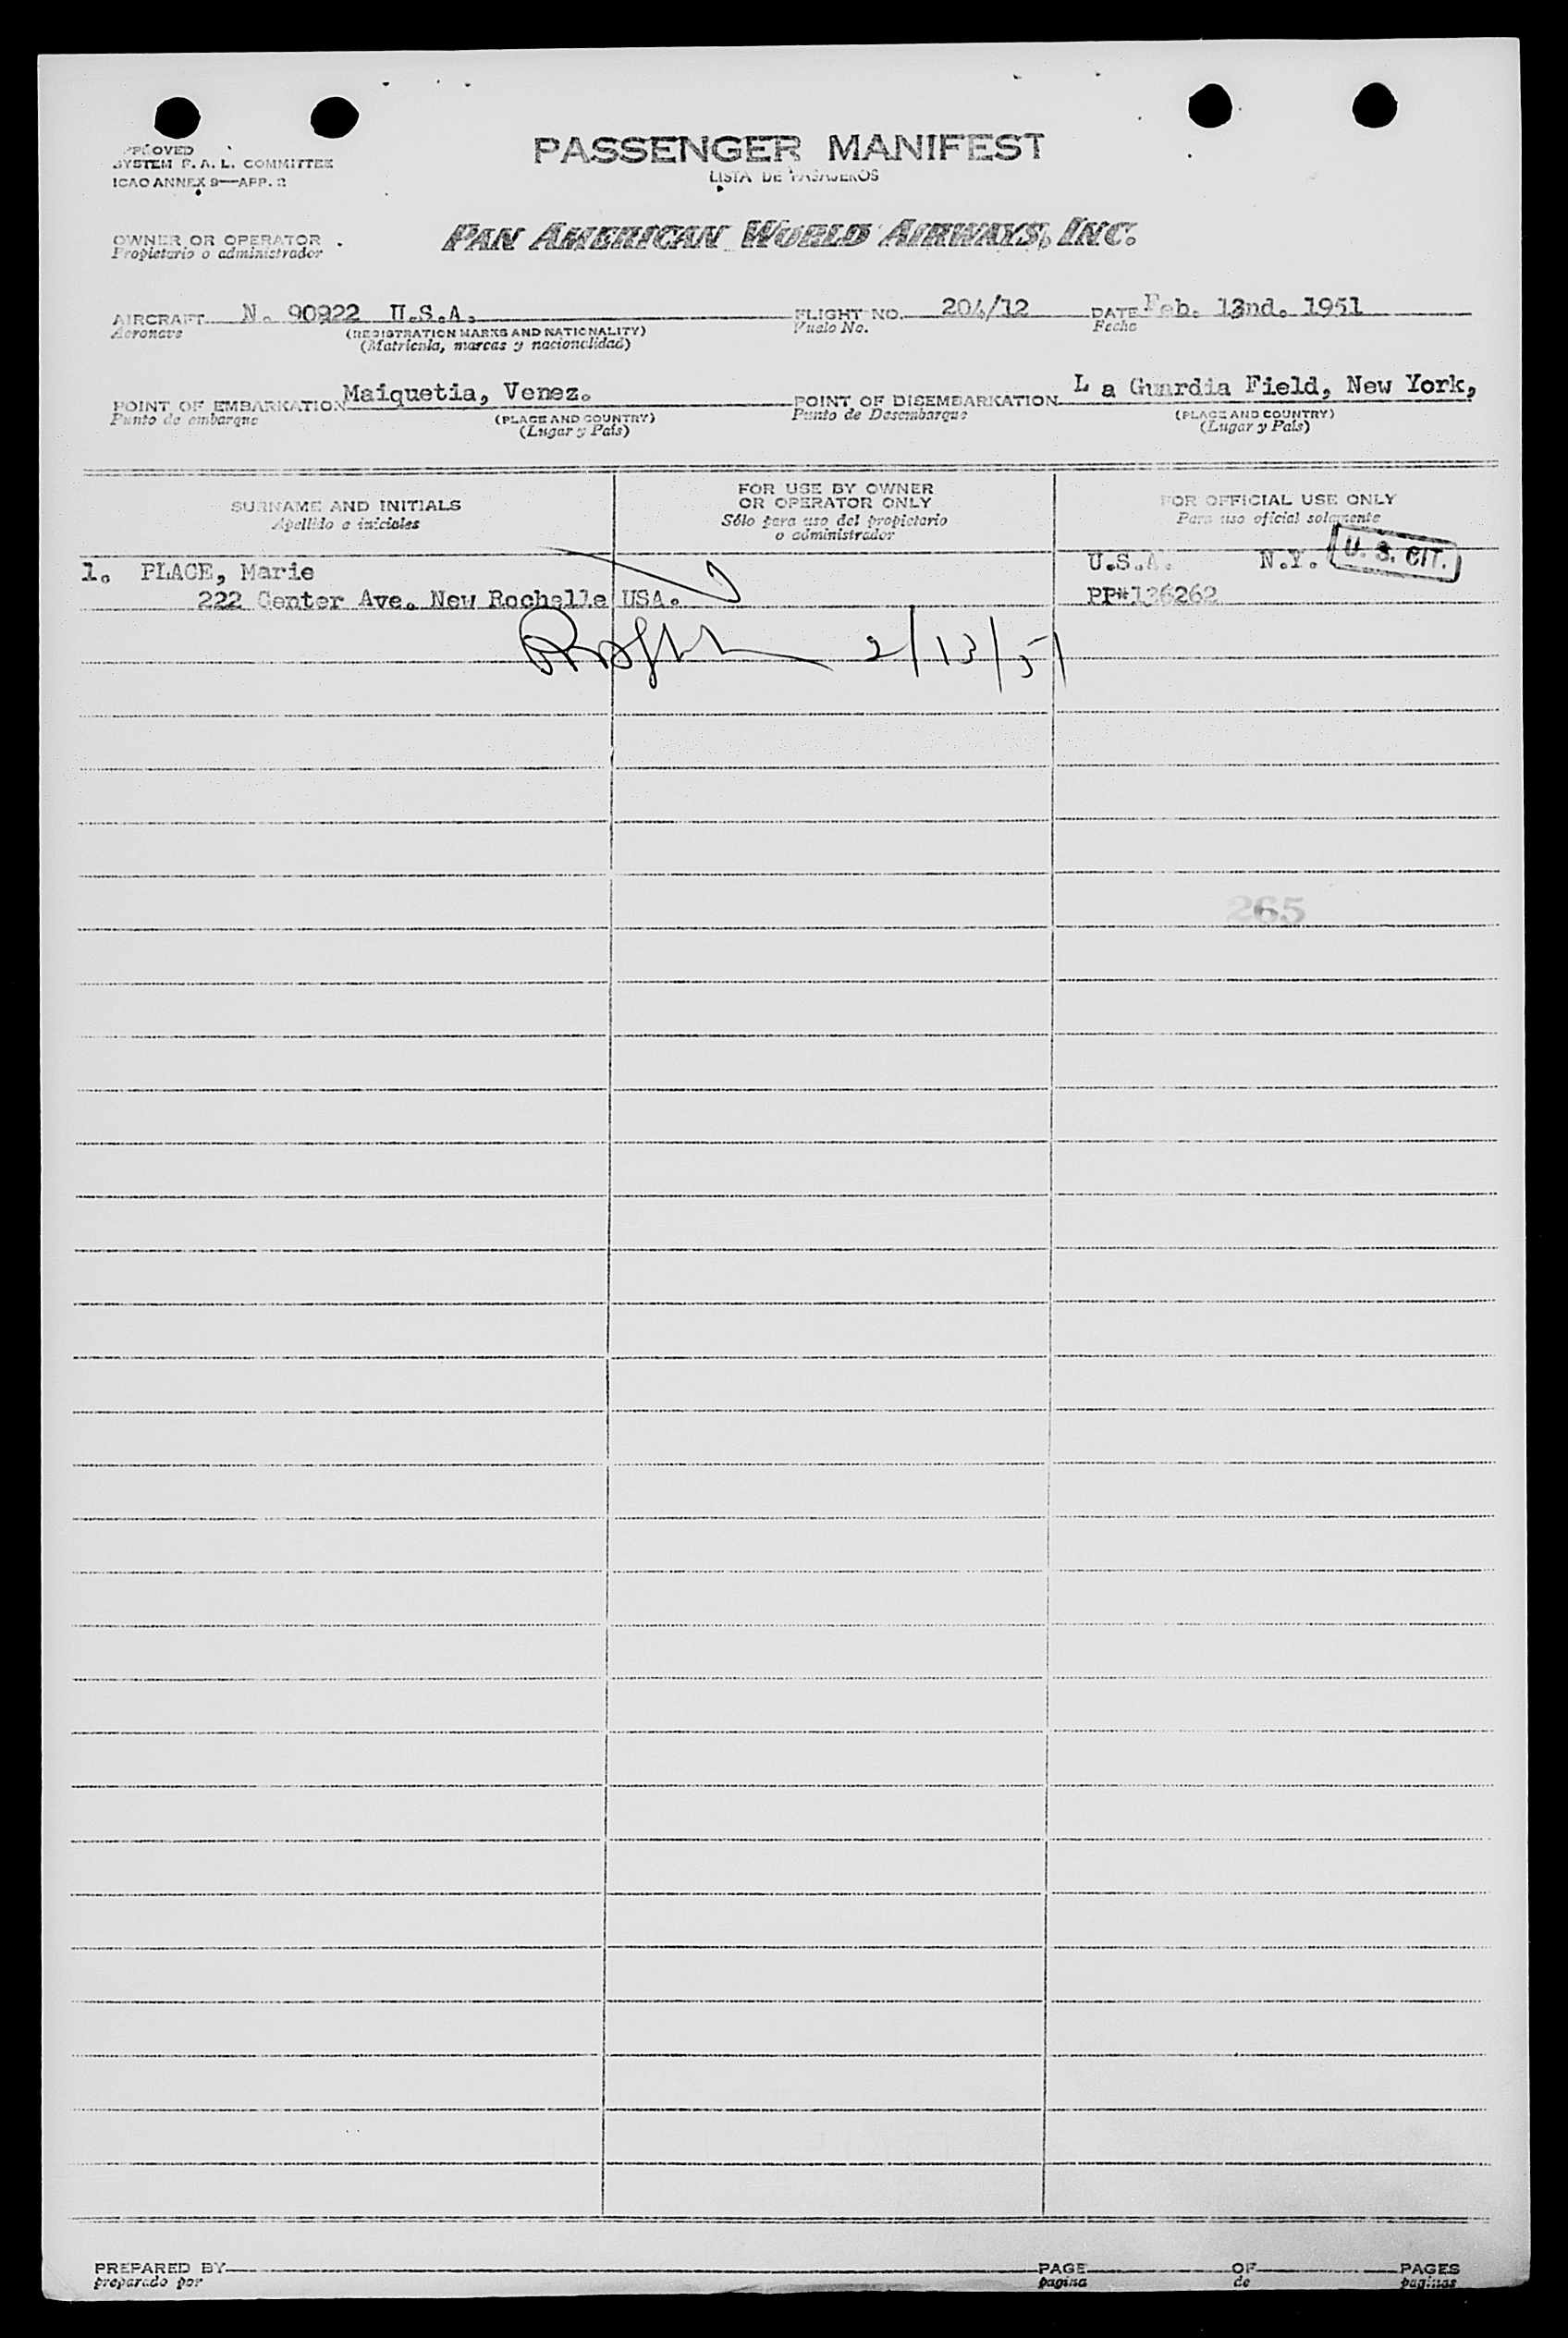 APPROVED
SYSTEM F. A. L. COMMITTEE
ICAO ANNEX 9—APP. 2
PASSENGER MANIFEST
LISTA DE PASAJEROS
OWNER OR OPERATOR
Propietario o administrador
PAN AMERICAN WORLD AIRWAYS, INC.
AIRCRAFT N. 90922 U.S.A.
Aeronave
(REGISTRATION MARKS AND NATIONALITY)
(Matricula, marcas y nacionalidad)
FLIGHT NO. 204/12
Vuelo No.
DATE Feb. 13nd. 1951
Fecha
POINT OF EMBARKATION Maiquetia, Venez.
Punto de embarque
(PLACE AND COUNTRY)
(Lugar y País)
POINT OF DISEMBARKATION L a Guardia Field, New York,
Punto de Desembarque
(PLACE AND COUNTRY)
(Lugar y País)
SURNAME AND INITIALS
Apellido e iniciales
FOR USE BY OWNER
OR OPERATOR ONLY
Sólo para uso del propietario
o administrador
FOR OFFICIAL USE ONLY
Para uso oficial solamente
1. PLACE, Marie
U.S.A. N.Y.
U. S. CIT.
222 Center Ave. New Rochelle USA.
PP#136262
2/13/51
265
PREPARED BY
preparado por
PAGE OF PAGES
pagina de paginas